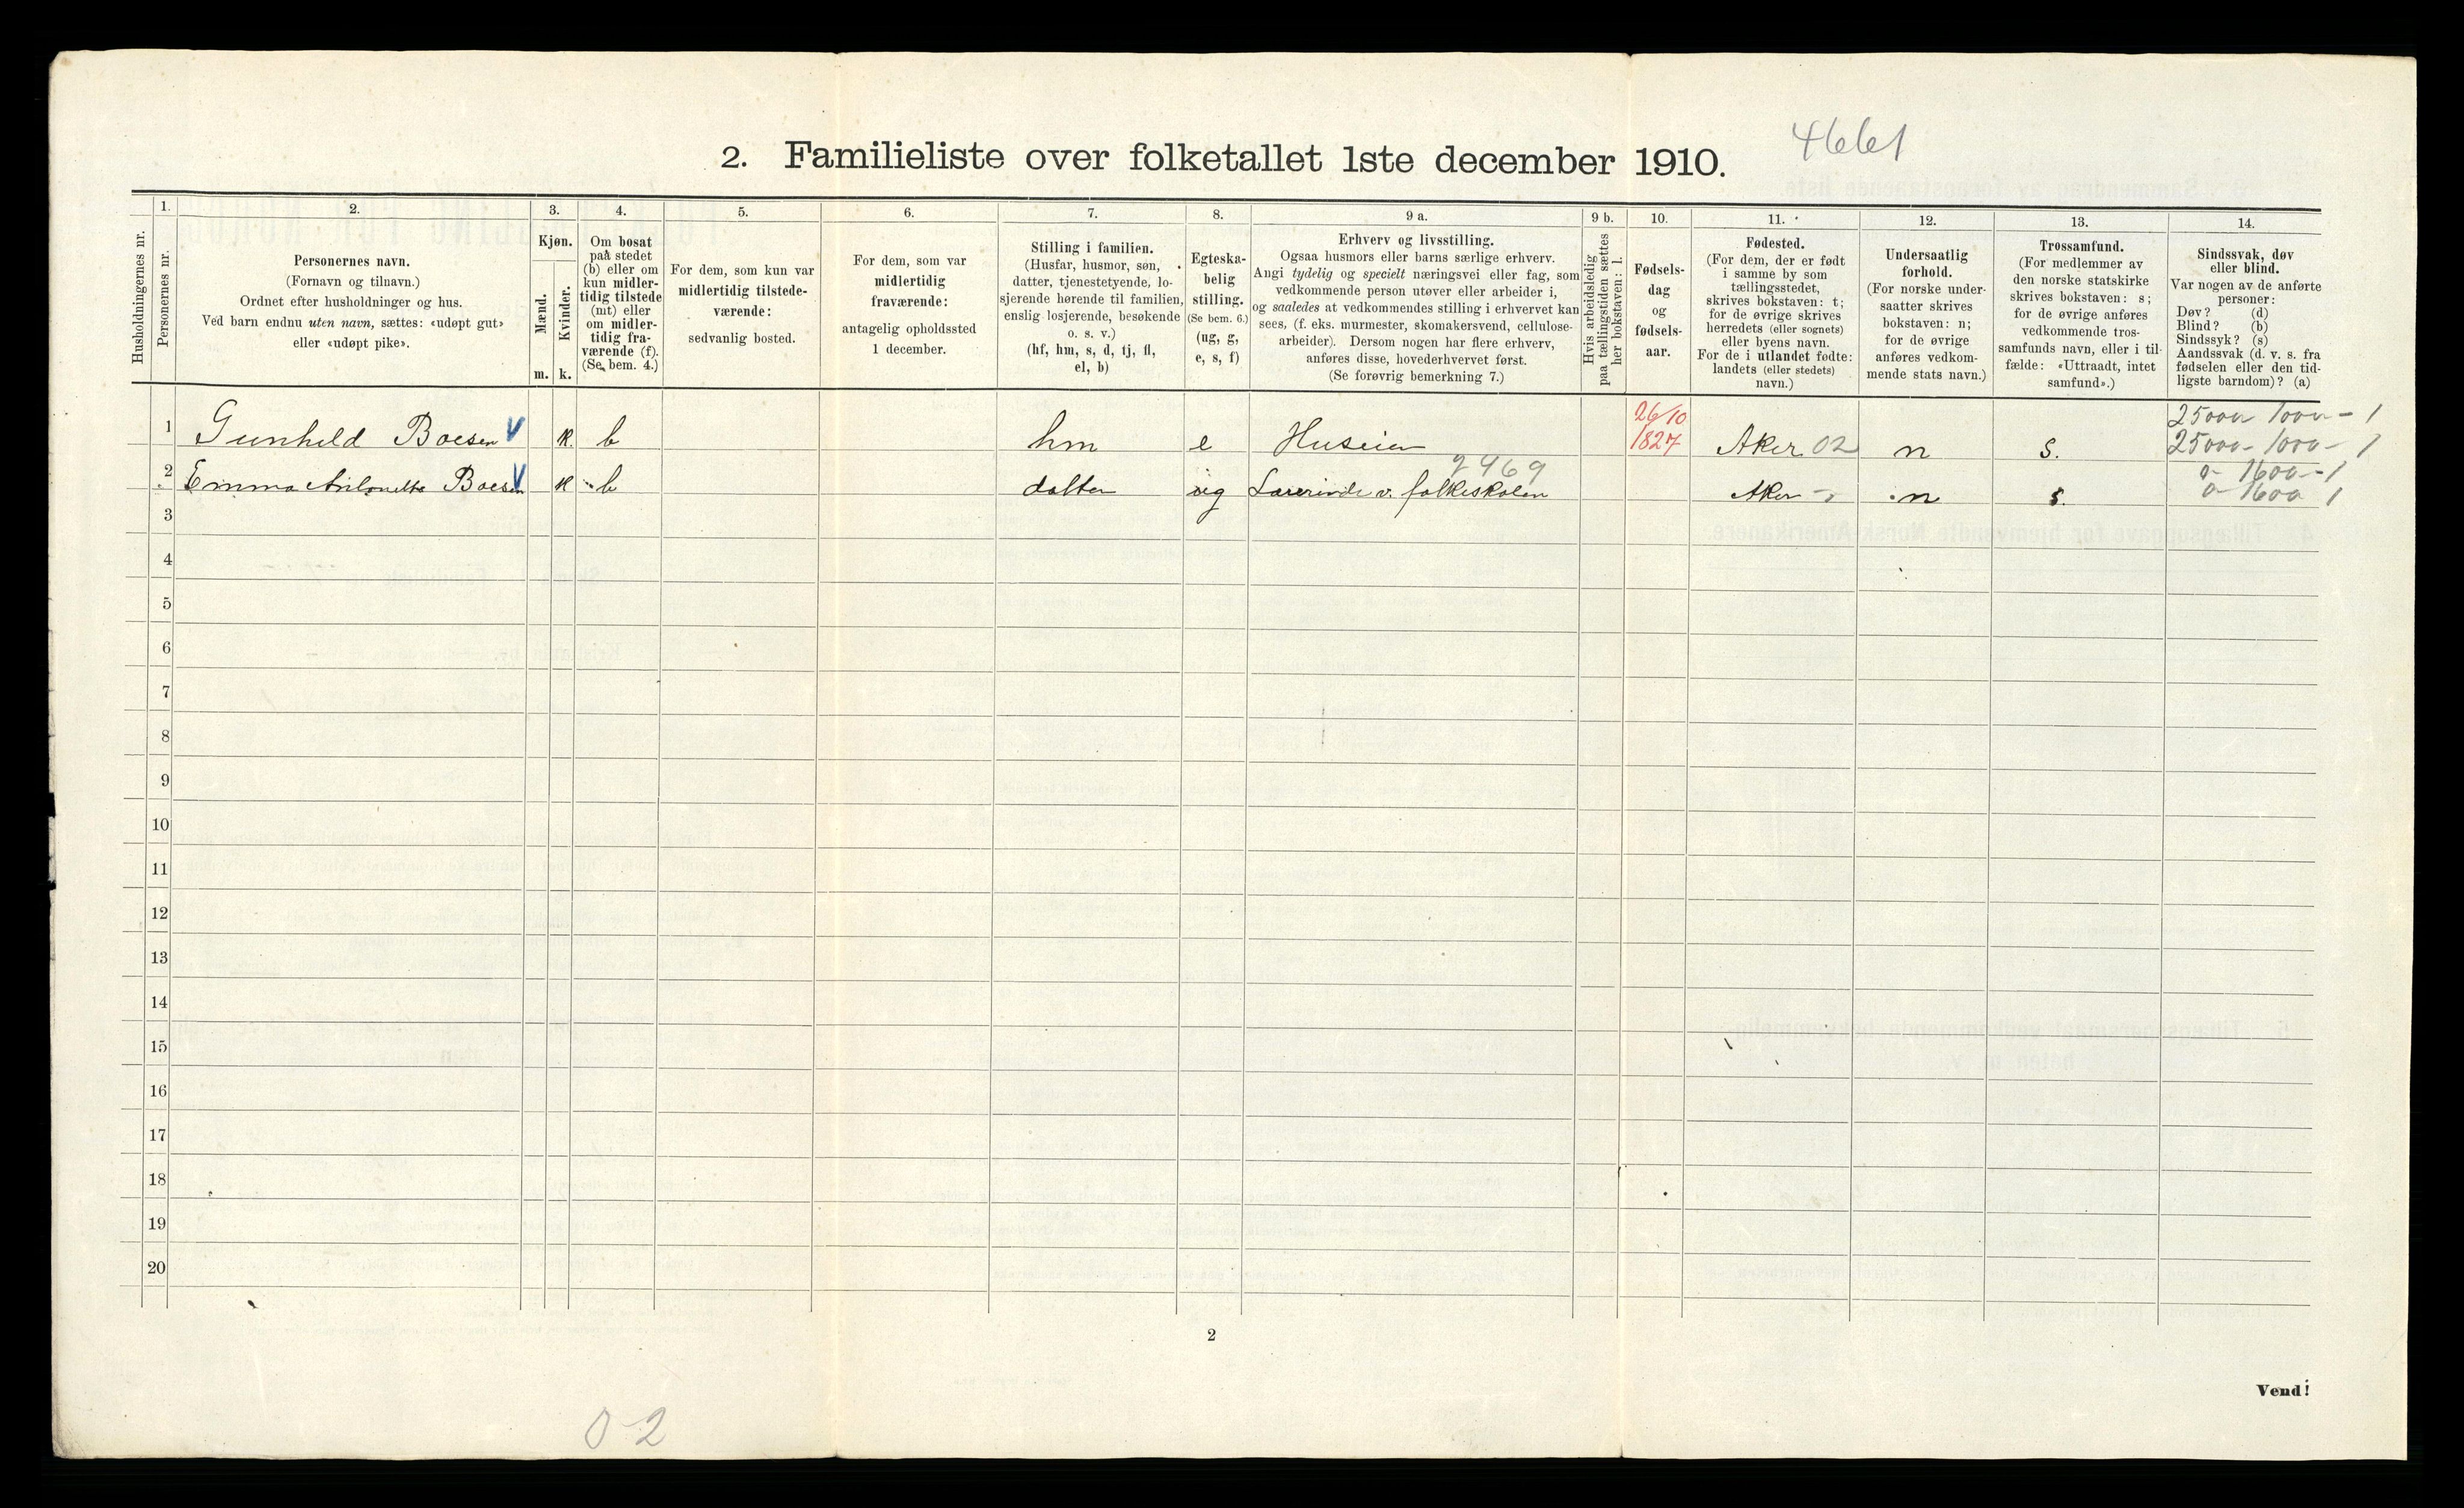 4661
2. Familieliste over folketallet 1ste december 1910.
Husholdningernes nr.
1.
Personernes nr.
2.
Personernes navn.
(Fornavn og tilnavn.)
Ordnet efter husholdninger og hus.
Ved barn endnu uten navn, sættes: «udøpt gut»
eller «udøpt pike».
3.
Kjøn.
Mænd.
Kvinder.
m. k.
4.
Om bosat
paa stedet
(b) eller om
kun midler-
tidig tilstede
(mt) eller
om midler-
tidig fra-
værende (f).
(Se bem. 4.)
5.
For dem, som kun var
midlertidig tilstede-
værende:
sedvanlig bosted.
6.
For dem, som var
midlertidig
fraværende:
antagelig opholdssted
1 december.
7.
Stilling i familien.
(Husfar, husmor, søn,
datter, tjenestetyende, lo-
sjerende hørende til familien,
enslig losjerende, besøkende
o. s. v.)
(hf, hm, s, d, tj, fl,
el, b)
8.
Egteska-
belig
stilling.
(Se bem. 6.)
(ug, g,
e, s, f)
9 a.
Erhverv og livsstilling.
Ogsaa husmors eller barns særlige erhverv.
Angi tydelig og specielt næringsvei eller fag, som
vedkommende person utøver eller arbeider i,
og saaledes at vedkommendes stilling i erhvervet kan
sees, (f. eks. murmester, skomakersvend, cellulose-
arbeider). Dersom nogen har flere erhverv,
anføres disse, hovederhvervet først.
(Se forøvrig bemerkning 7.)
9 b.
Hvis arbeidsledig
paa tællingstiden sættes
her bokstaven: l.
10.
Fødsels-
dag
og
fødsels-
aar.
11.
Fødested.
(For dem, der er født
i samme by som
tællingsstedet,
skrives bokstaven: t;
for de øvrige skrives
herredets (eller sognets)
eller byens navn.
For de i utlandet fødte:
landets (eller stedets)
navn.)
12.
Undersaatlig
forhold.
(For norske under-
saatter skrives
bokstaven: n;
for de øvrige
anføres vedkom-
mende stats navn.)
13.
Trossamfund.
(For medlemmer av
den norske statskirke
skrives bokstaven: s;
for de øvrige anføres
vedkommende tros-
samfunds navn, eller i til-
fælde: «Uttraadt, intet
samfund».)
14.
Sindssvak, døv
eller blind.
Var nogen av de anførte
personer:
Døv? (d)
Blind? (b)
Sindssyk? (s)
Aandssvak (d. v. s. fra
fødselen eller den tid-
ligste barndom)? (a)
25000 1000 - 1
1 Gunhild Boesen V k. b hm e Huseier 26/10 1827 Aker 02 n s. 25000 - 1000 - 1
2469 0 - 1600 - 1
2 Emma Antonette Boesen V k b datter ug Lærerinde v. folkeskolen Aker n s. 0 - 1600 1
3
4
5
6
7
8
9
10
11
12
13
14
15
16
17
18
19
20
2
Vend!
0-2